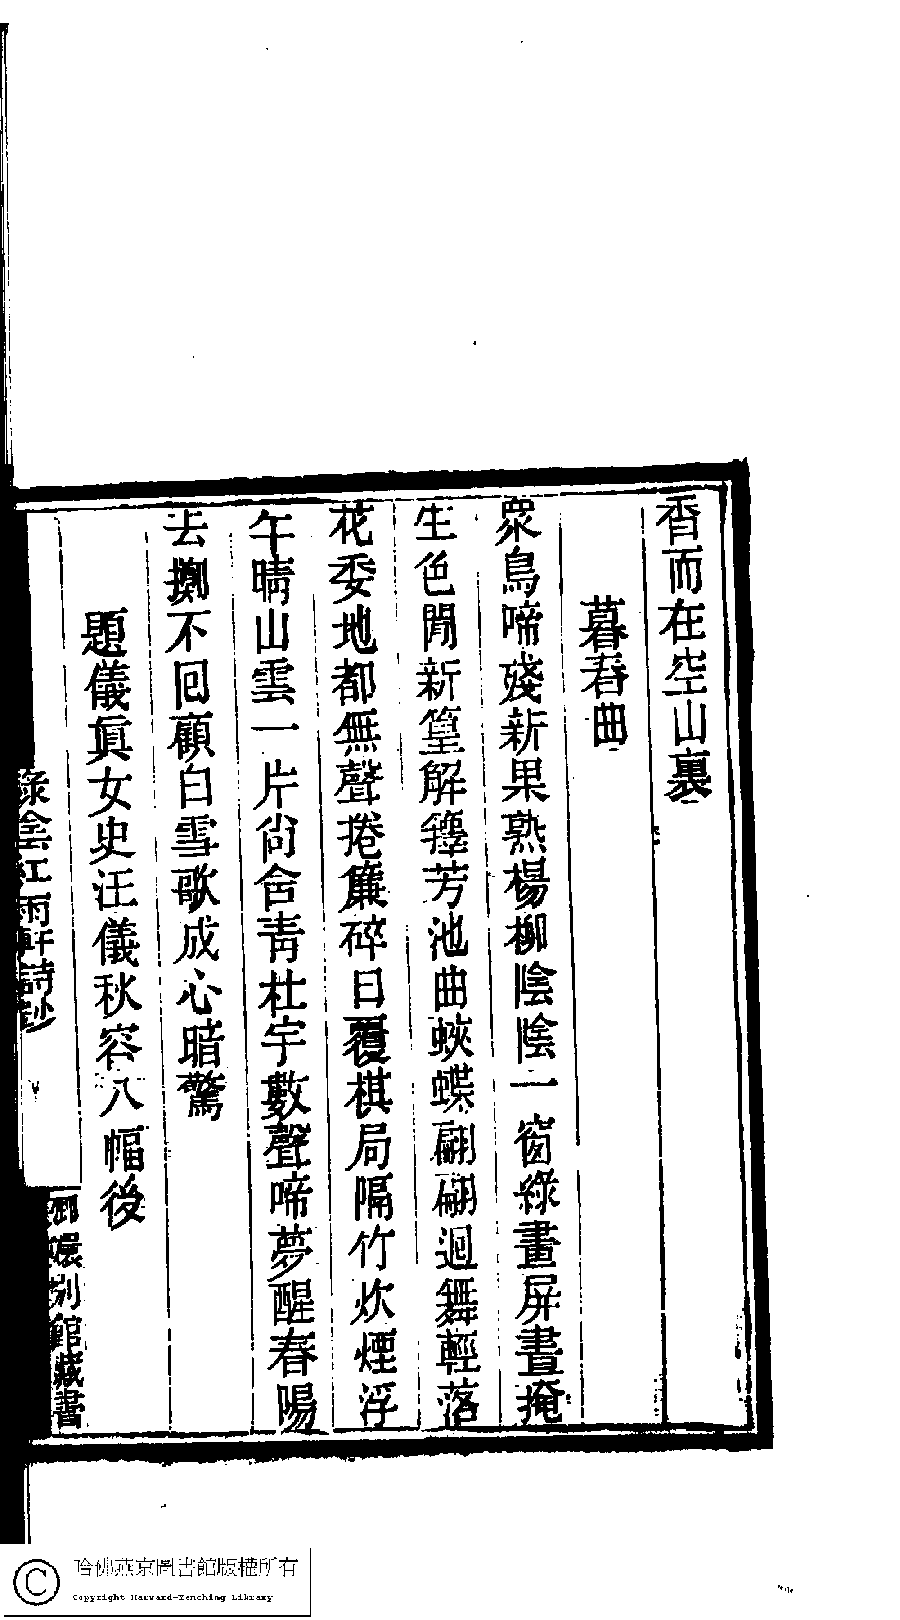 香而在空山裏
暮春曲
眾鳥啼殘新果熟楊柳陰陰一窗綠畫屏晝掩
生色閒新篁解籜芳池曲蛺蝶翩翩迴舞輕落
花委地都無聲捲簾碎日覆棋局隔竹炊煙浮
午晴山雲一片尙含靑杜宇數聲啼夢醒春陽
去擲不回顧白雪歌成心暗驚
題儀眞女史汪儀秋容八幅後
綠陰紅雨軒詩鈔
嬛別館藏書
哈佛燕京圖書館版權所有
Copyright Harvard-Yenching Library